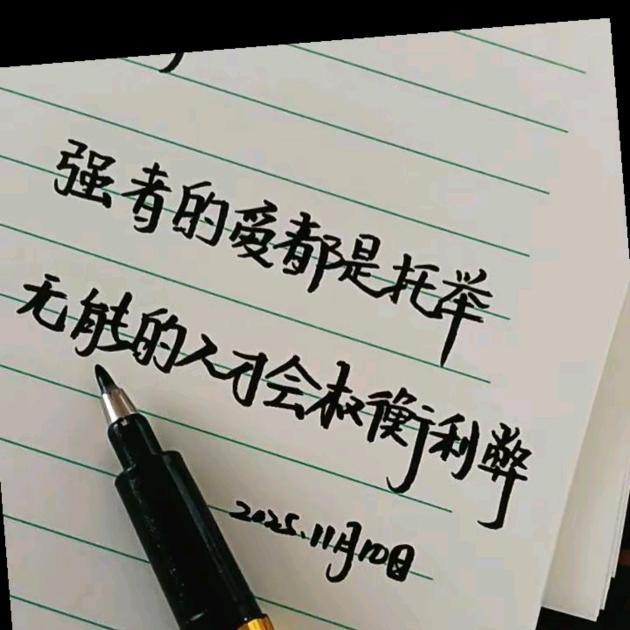 强者的爱都是托举
无能的人才会权衡利弊
2025.11月10日